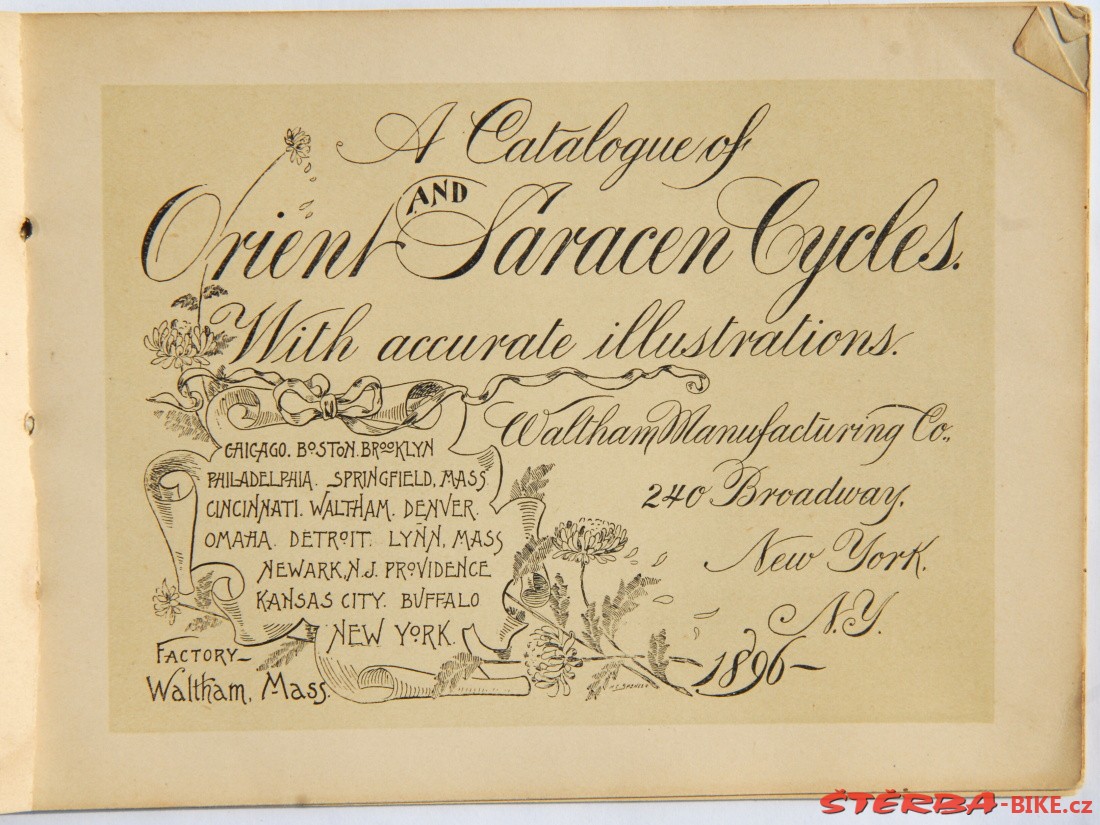 A Catalogue of
Orient AND Saracen Cycles.
With accurate illustrations.
CHICAGO. BOSTON. BROOKLYN
PHILADELPHIA. SPRINGFIELD, MASS
CINCINNATI. WALTHAM. DENVER.
OMAHA. DETROIT. LYNN, MASS
NEWARK, N.J. PROVIDENCE
KANSAS CITY. BUFFALO
NEW YORK.
FACTORY—
Waltham, Mass.
Waltham Manufacturing Co.,
240 Broadway.
New York.
N.Y.
1896—
ŠTĚRBA-BIKE.cz